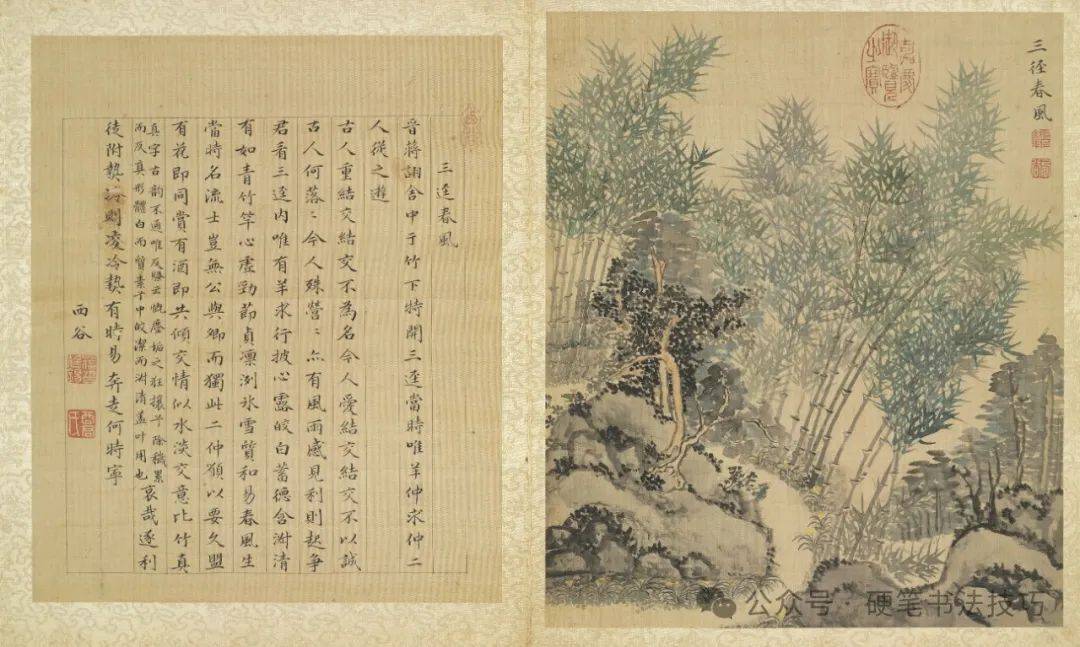 三徑春風
嘉慶御覽之寶
三逕春風
晉蔣詡舍中于竹下特開三逕當時唯羊仲求仲二
人從之遊
古人重結交結交不為名今人愛結交結交不以誠
古人何落〻今人殊營〻亦有風雨感見利則起爭
君看三逕內唯有羊求行披心露皎白蓄德含淑清
有如青竹竿心虛勁節貞凜冽氷雪質和易春風生
當時名流士豈無公與卿而獨此二仲願以要久盟
有花即同賞有酒即共傾交情似水淡交意比竹真
真字古韵不通唯反騷云慨塵垢之狂攘兮除穢累
而反真形體白而質素兮中皎潔而淑清蓋叶用也
哀哉逐利
徒附熱冷則凌冷熱有時易奔走何時寧
西谷
公众号·硬笔书法技巧